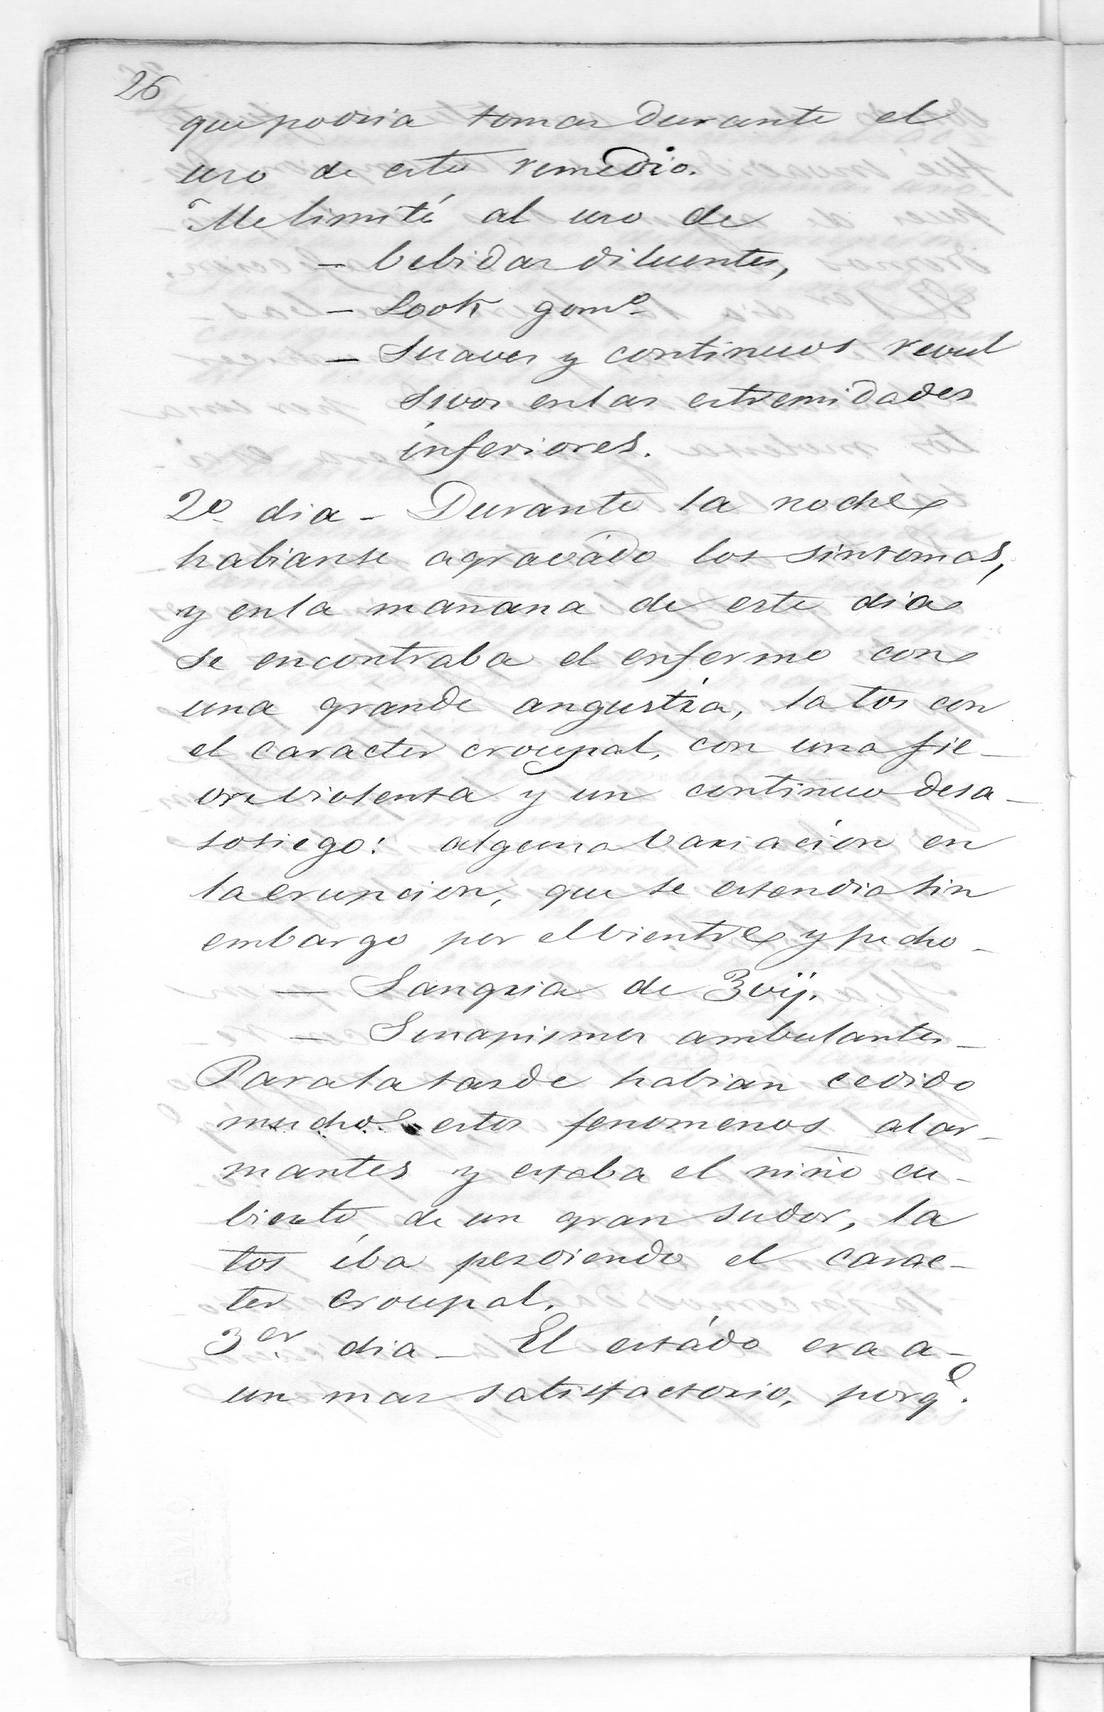 26
que podria tomar durante el
uso de este remedio.
Me limité al uso de
- bebidas diluentes,
- Look gomo.
- Suaves y continuos revul
sivos en las estremidades
inferiores.
2o. dia - Durante la noche
habianse agravádo los sintomas,
y en la mañana de este dia
se encontraba el enfermo con
una grande angustia, la tos con
el caracter croupal, con una fie-
bre violenta y un continuo desa-
sosiego: alguna variacion en
la erupcion, que se estendia sin
embargo por el vientre y pecho -
- Sangria de ℥vij.
- Sinapismos ambulantes -
Para la tarde habian cedido
mucho estos fenomenos alar-
mantes y estaba el niño cu-
bierto de un gran sudor, la
tos iba perdiendo el carac-
ter croupal.
3er. dia - El estádo era a-
un mas satisfactorio, porqe.